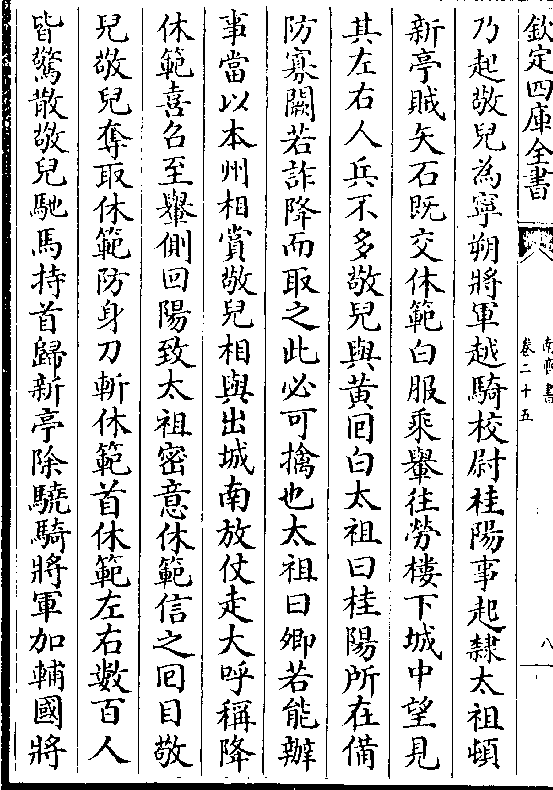 欽定四庫全書
南齊書
卷二十五
八
乃起敬兒為寧朔將軍越騎校尉桂陽事起隸太祖頓
新亭賊矢石既交休範白服乘轝往勞樓下城中望見
其左右人兵不多敬兒與黃囘白太祖曰桂陽所在備
防寡闕若詐降而取之此必可擒也太祖曰卿若能辦
事當以本州相賞敬兒相與出城南放仗走大呼稱降
休範喜召至轝側回陽致太祖密意休範信之囘目敬
兒敬兒奪取休範防身刀斬休範首休範左右數百人
皆驚散敬兒馳馬持首歸新亭除驍騎將軍加輔國將